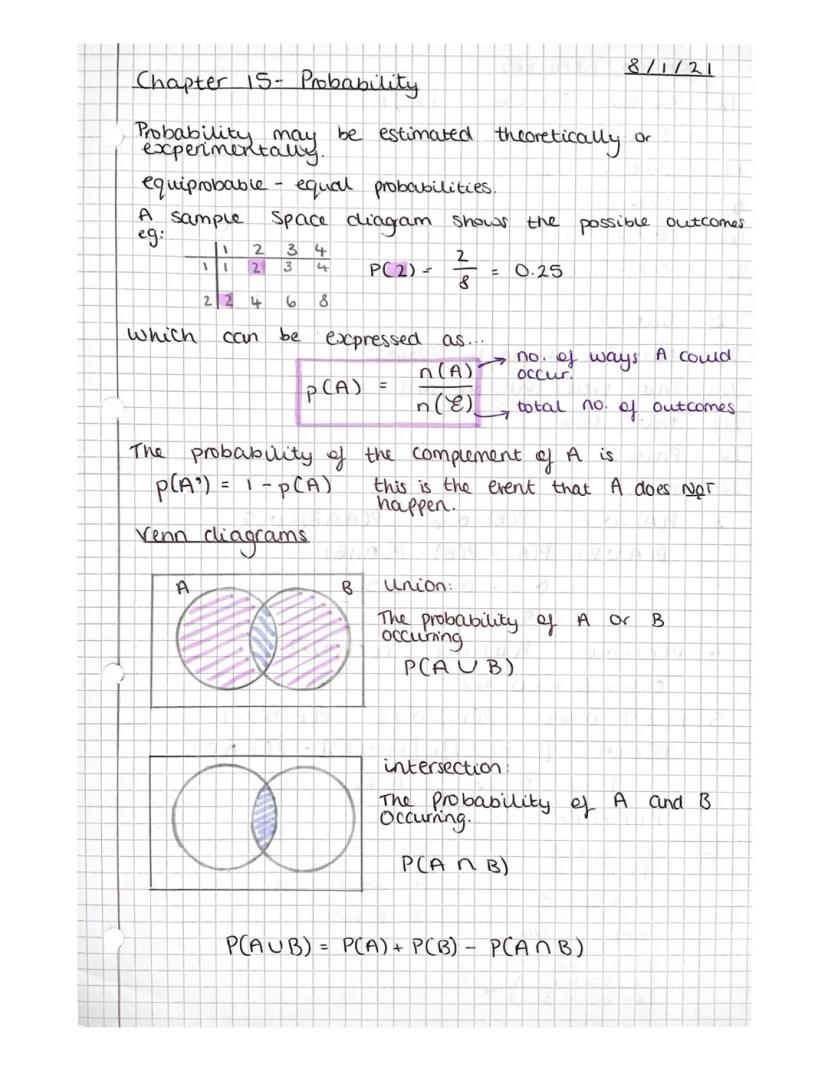 8/1/21
Chapter 15- Probability
Probability may be estimated theoretically or
experimentally.
equiprobable - equal probabilities.
A sample space diagam shows the possible outcomes
eg:
1 2 3 4
1 1 2 3 4
P(2) = 2/8 = 0.25
2 2 4 6 8
which can be expressed as...
p(A) = n(A)/n(ℰ)
no. of ways A could
occur.
total no. of outcomes
The probability of the complement of A is
p(A') = 1 - p(A) this is the event that A does NOT
happen.
Venn diagrams
A B
Union:
The probability of A or B
occurring
P(A ∪ B)
intersection:
The probability of A and B
Occurring.
P(A ∩ B)
P(A∪B) = P(A) + P(B) - P(A∩B)